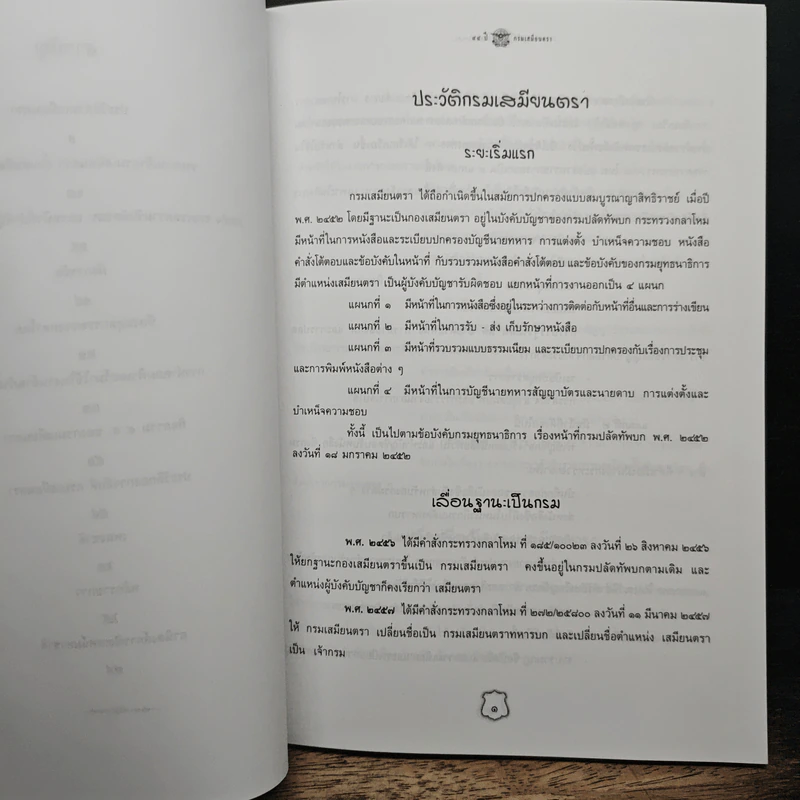 ๙๙ ปี กรมเสมียนตรา
ประวัติกรมเสมียนตรา
ระยะเริ่มแรก
กรมเสมียนตรา ได้ถือกำเนิดขึ้นในสมัยการปกครองแบบสมบูรณาญาสิทธิราชย์ เมื่อปี
พ.ศ. ๒๔๕๒ โดยมีฐานะเป็นกองเสมียนตรา อยู่ในบังคับบัญชาของกรมปลัดทัพบก กระทรวงกลาโหม
มีหน้าที่ในการหนังสือและระเบียบปกครองบัญชีนายทหาร การแต่งตั้ง บำเหน็จความชอบ หนังสือ
คำสั่งโต้ตอบและข้อบังคับในหน้าที่ กับรวบรวมหนังสือคำสั่งโต้ตอบ และข้อบังคับของกรมยุทธนาธิการ
มีตำแหน่งเสมียนตรา เป็นผู้บังคับบัญชารับผิดชอบ แยกหน้าที่การงานออกเป็น ๔ แผนก
แผนกที่ ๑ มีหน้าที่ในการหนังสือซึ่งอยู่ในระหว่างการติดต่อกับหน้าที่อื่นและการร่างเขียน
แผนกที่ ๒ มีหน้าที่ในการรับ - ส่ง เก็บรักษาหนังสือ
แผนกที่ ๓ มีหน้าที่รวบรวมแบบธรรมเนียม และระเบียบการปกครองกับเรื่องการประชุม
และการพิมพ์หนังสือต่าง ๆ
แผนกที่ ๔ มีหน้าที่ในการบัญชีนายทหารสัญญาบัตรและนายดาบ การแต่งตั้งและ
บำเหน็จความชอบ
ทั้งนี้ เป็นไปตามข้อบังคับกรมยุทธนาธิการ เรื่องหน้าที่กรมปลัดทัพบก พ.ศ. ๒๔๕๒
ลงวันที่ ๑๘ มกราคม ๒๔๕๒
เลื่อนฐานะเป็นกรม
พ.ศ. ๒๔๕๖ ได้มีคำสั่งกระทรวงกลาโหม ที่ ๑๘๕/๑๐๐๒๓ ลงวันที่ ๒๖ สิงหาคม ๒๔๕๖
ให้ยกฐานะกองเสมียนตราขึ้นเป็น กรมเสมียนตรา คงขึ้นอยู่ในกรมปลัดทัพบกตามเดิม และ
ตำแหน่งผู้บังคับบัญชาก็คงเรียกว่า เสมียนตรา
พ.ศ. ๒๔๕๗ ได้มีคำสั่งกระทรวงกลาโหม ที่ ๒๗๒/๒๕๘๐๐ ลงวันที่ ๑๑ มีนาคม ๒๔๕๗
ให้ กรมเสมียนตรา เปลี่ยนชื่อเป็น กรมเสมียนตราทหารบก และเปลี่ยนชื่อตำแหน่ง เสมียนตรา
เป็น เจ้ากรม
๑